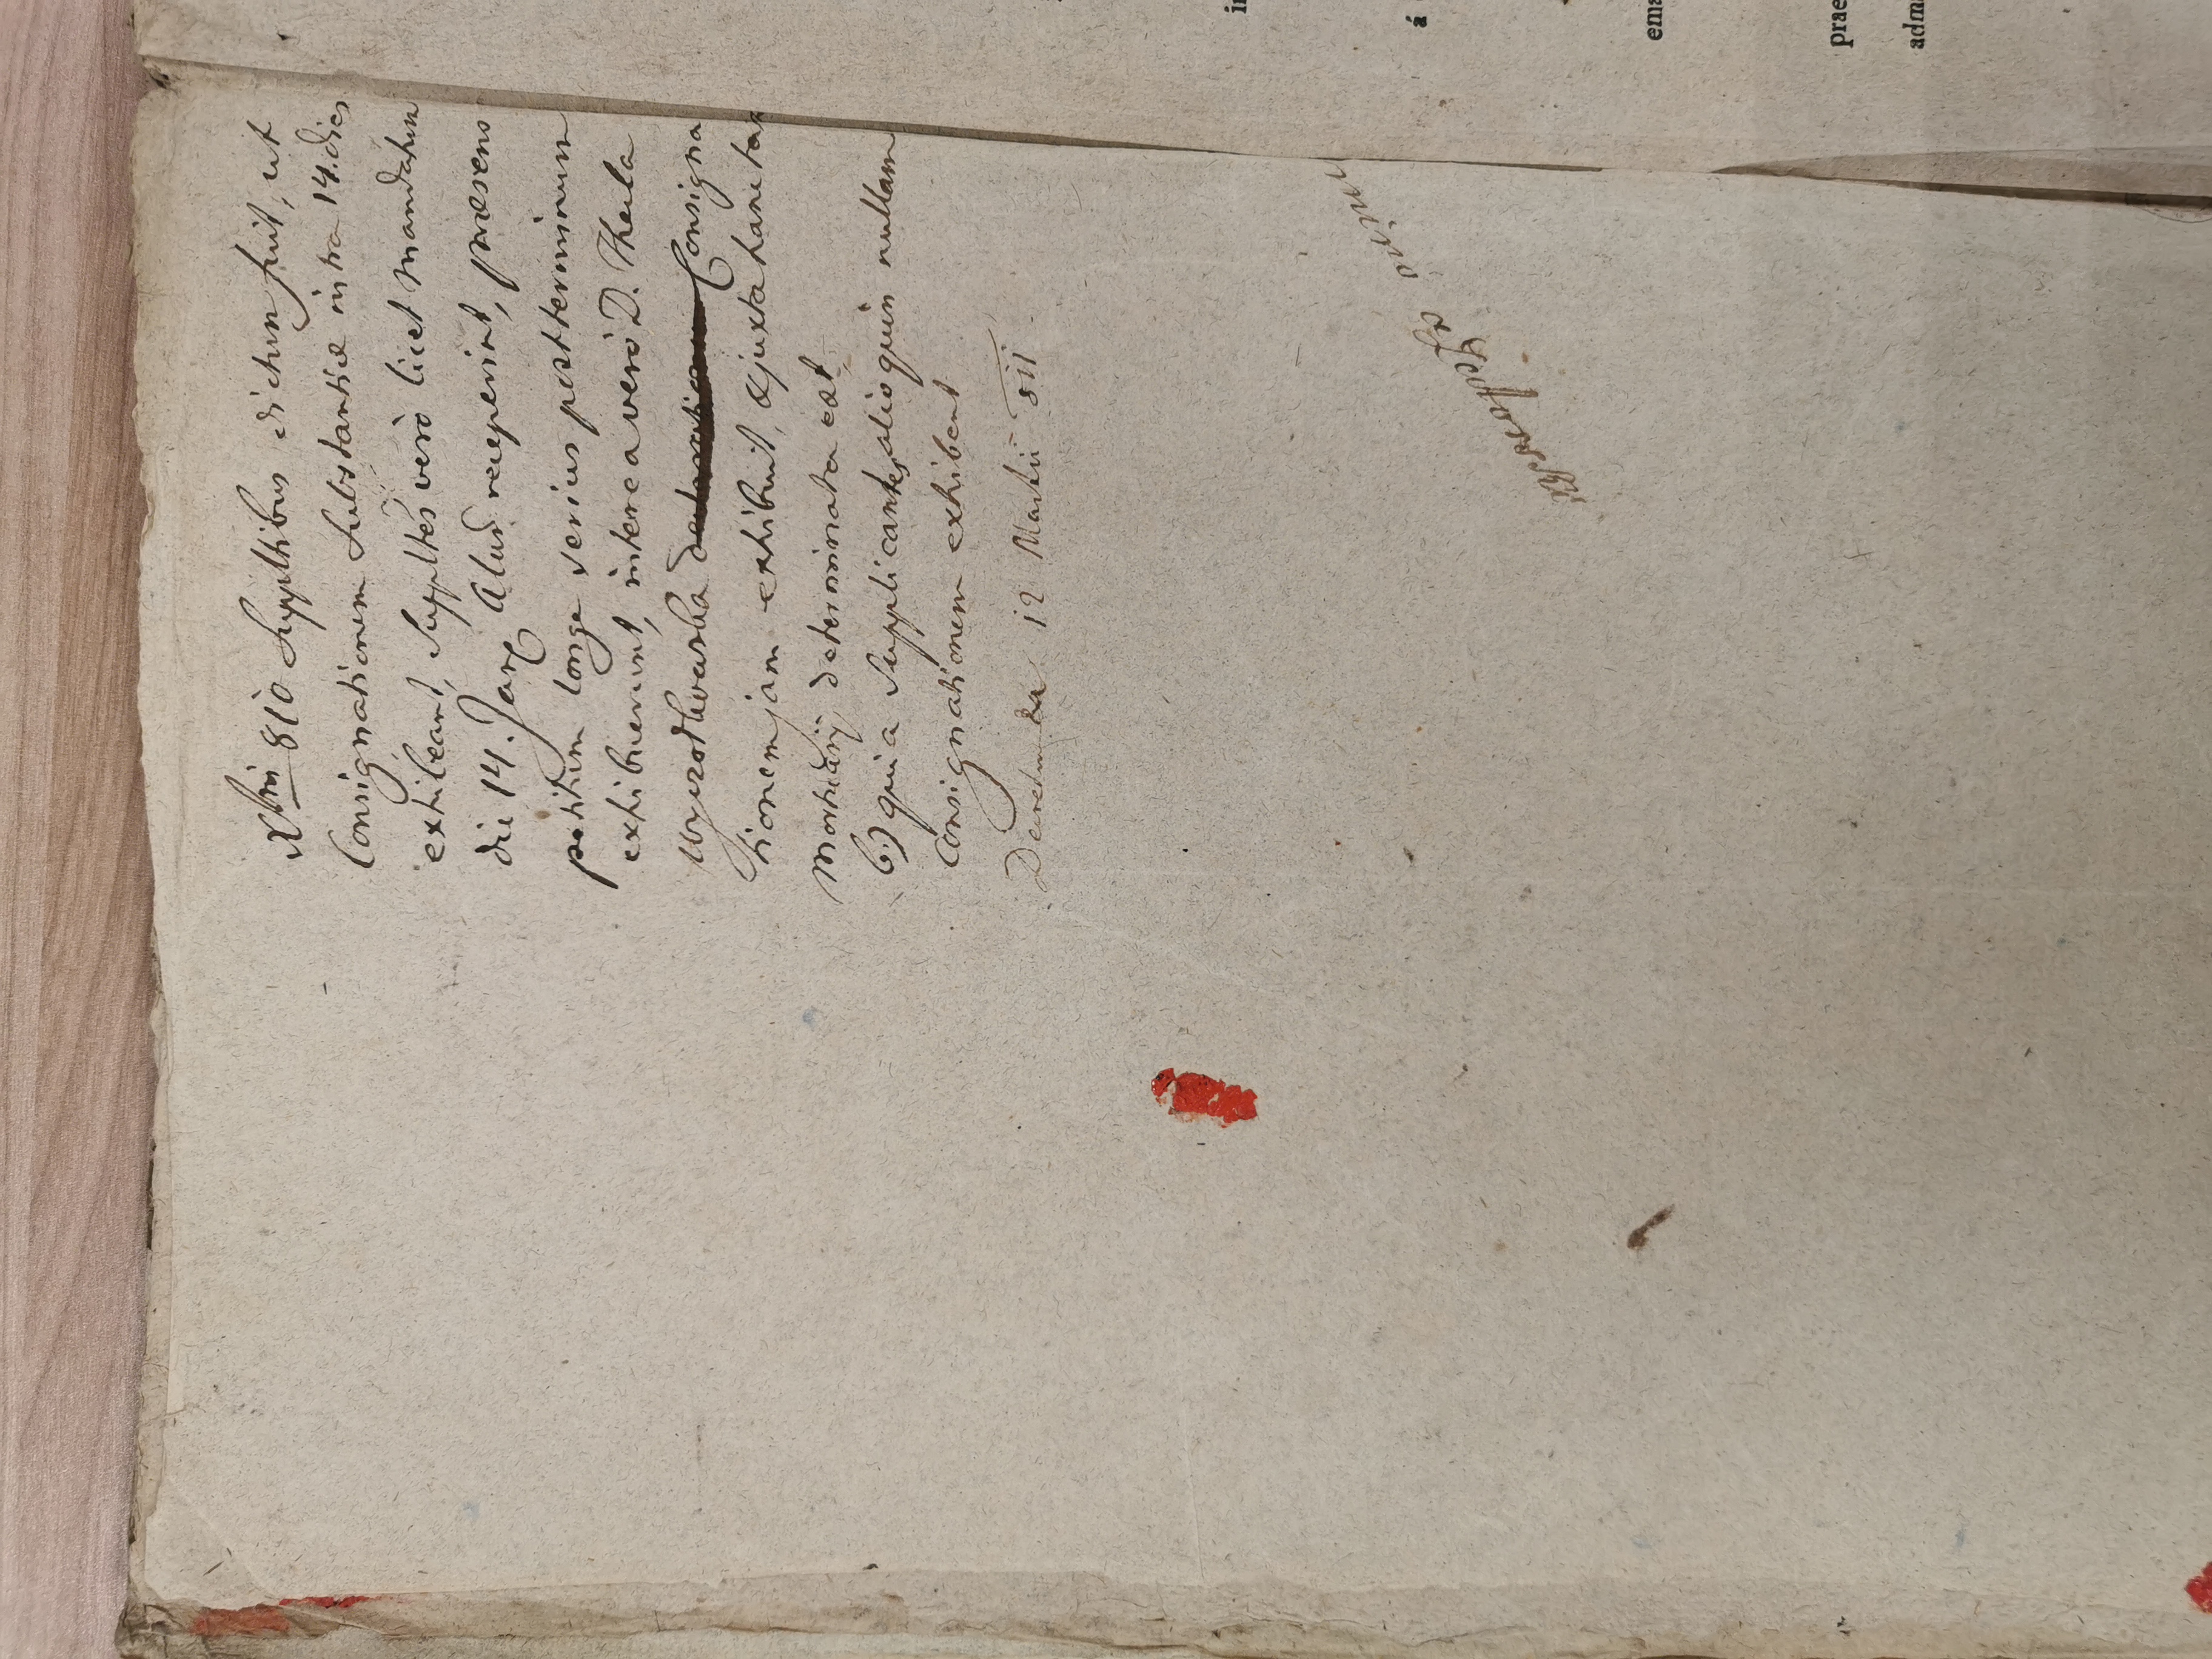 Xbris 810 Suppltibus dictum fuit, ut
Consignationem Substantiae intra 14. dies
exhibeant, Suppltes verò licet mandatum
die 14. Jan Alud. receperint, praesens
petitum longe serius post terminum
exhibuerunt, interea verò D. Thecla
Wyszotlwaska Consigna
tionem jam exhibuit, & juxta hanc tax
mortuarij determinata est
b.) quia Supplicantes alio quin nullam
Consignationem exhibent
12 Martii 811
in
á
ema
prae
adma